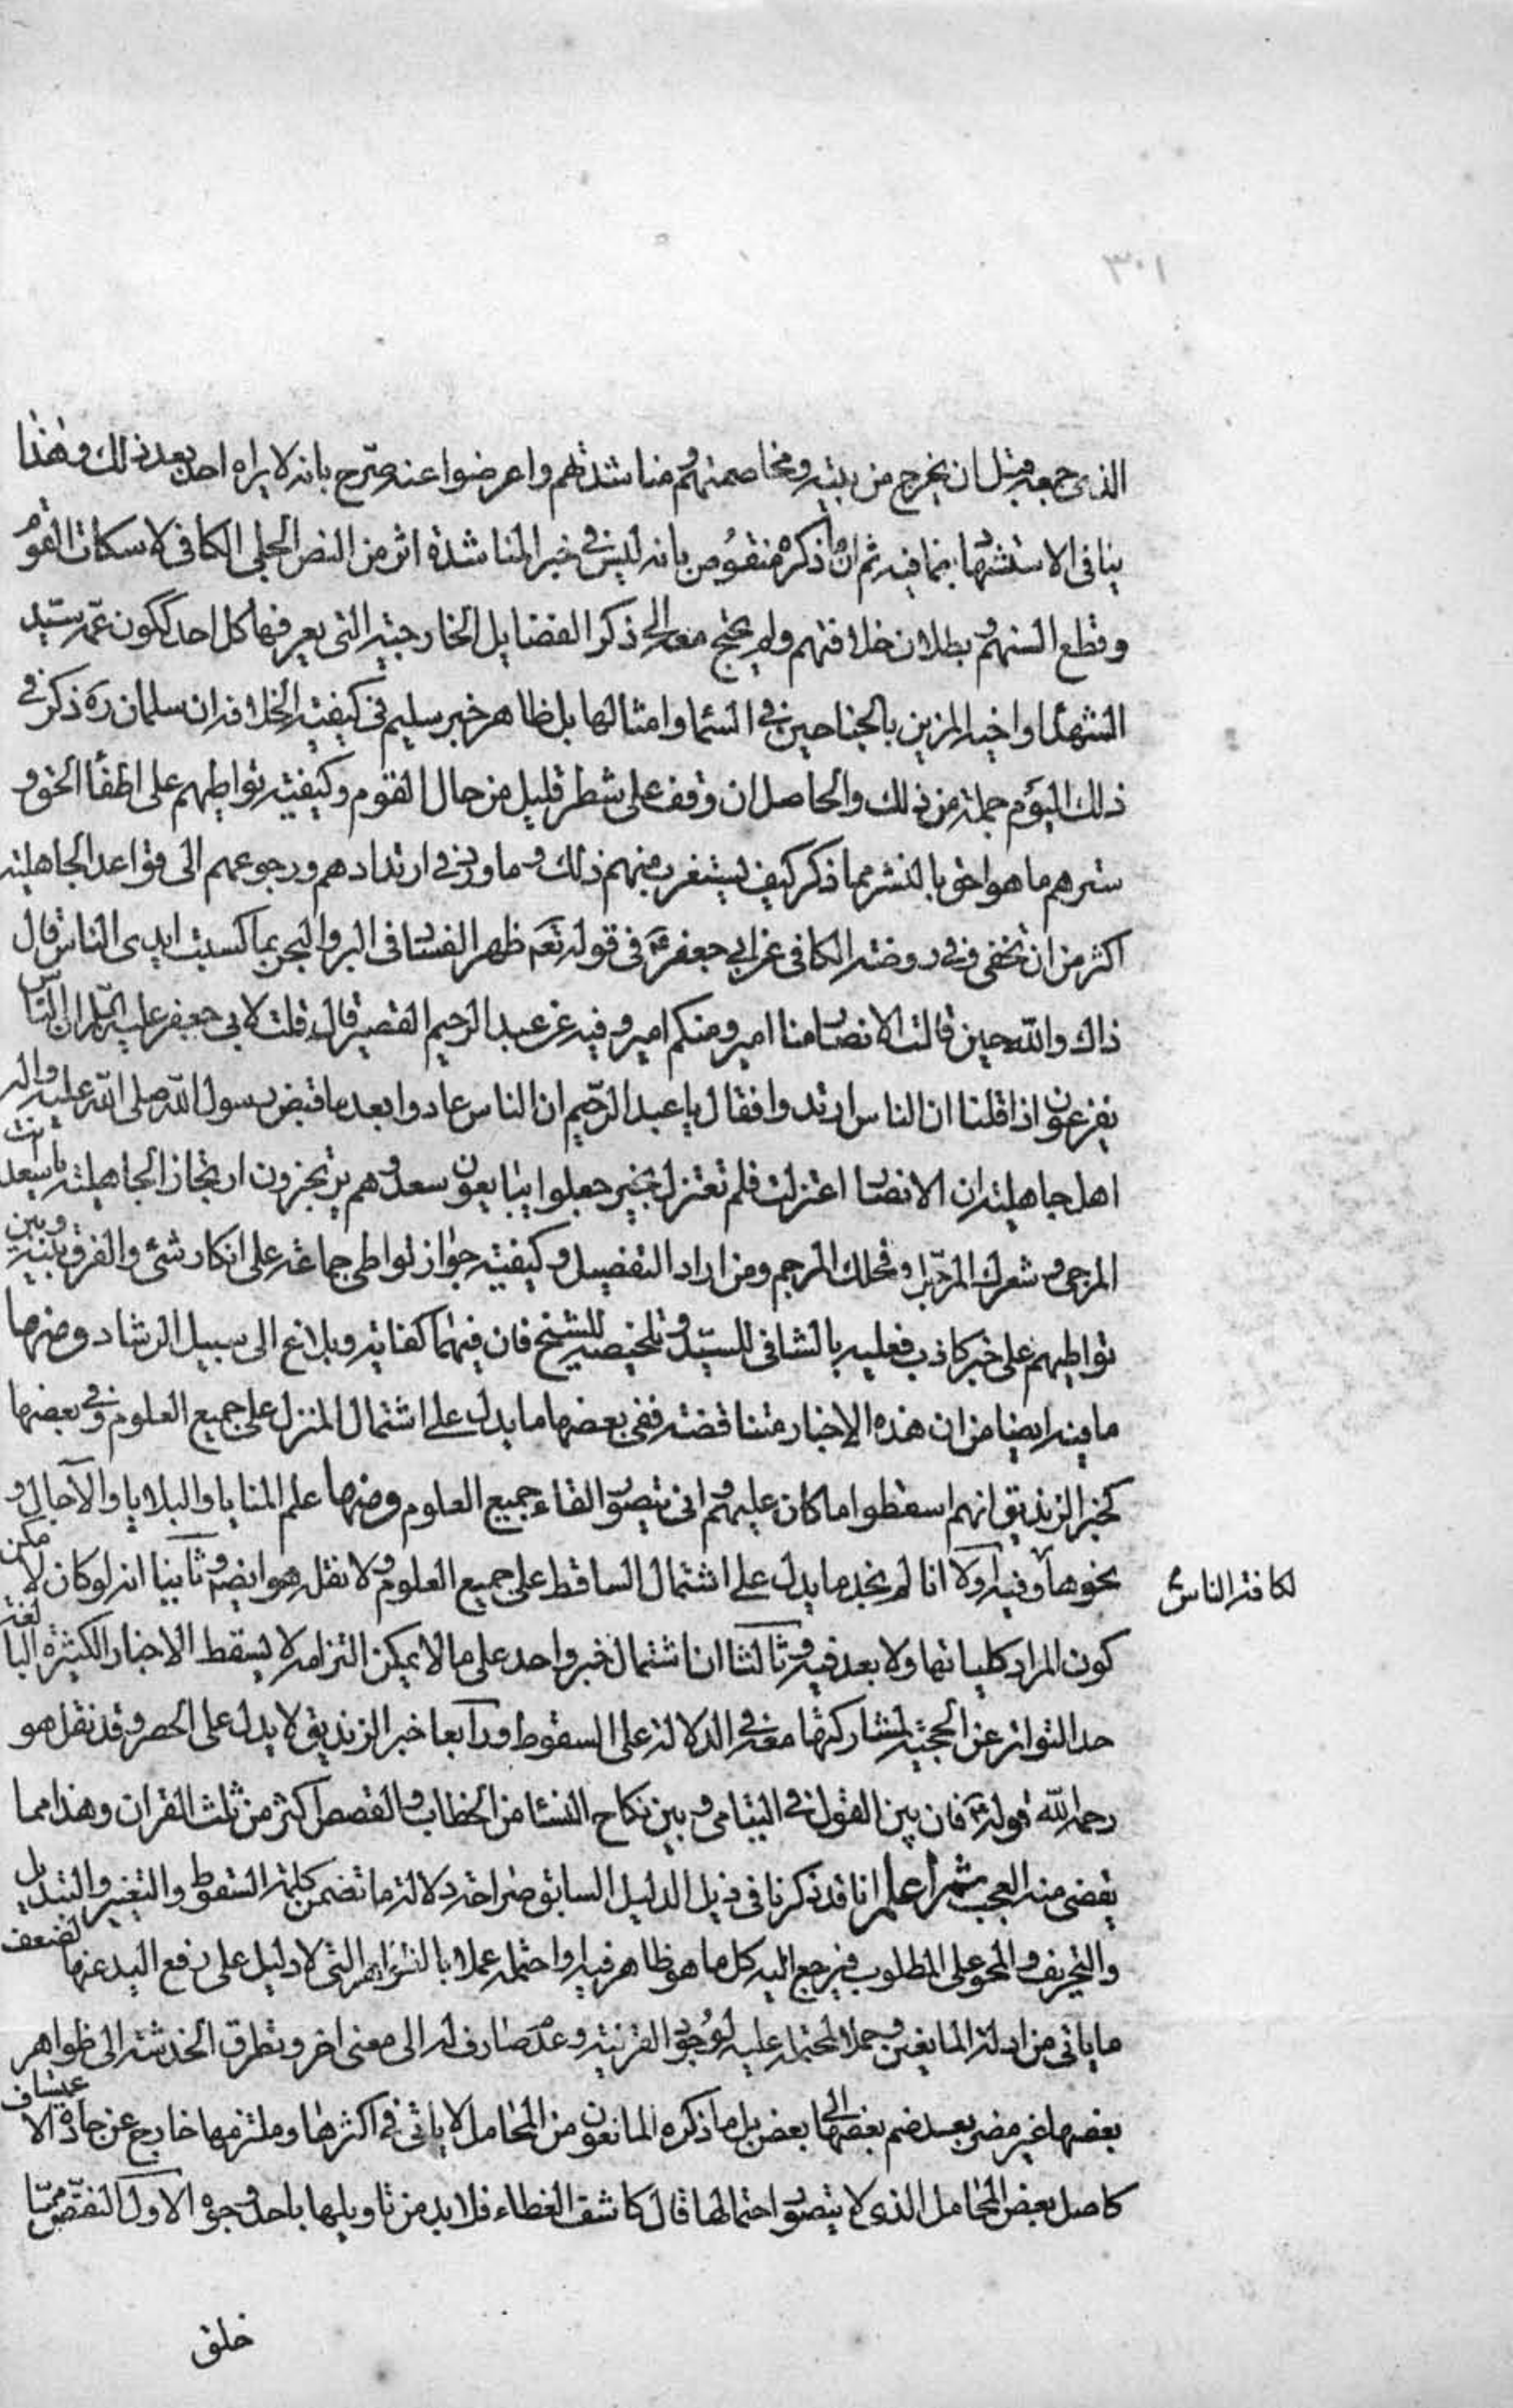 ٣٠١
الذى جمعه قبل ان يخرج من بيته ومخاصمتهم ومناشدتهم واعرضوا عنه صرّح بانه لا يراه احد بعد ذلك وهذا
ينافى الاستشهاد بما فيه ثم ان ما ذكره منقوض بانه ليس فى خبر المناشدة اثر من النص الجلى الكافى لاسكات القوم
وقطع السنتهم وبطلان خلافتهم ولم يحتج معه الى ذكر الفضايل الخارجية التى يعرفها كل احد ككون عمّه سيّد
الشهدا واخيه المزين بالجناحين فى السما وامثالها بل ظاهر خبر سليم فى كيفية الخلافة ان سلمان ره ذكر فى
ذلك اليوم جملة من ذلك والحاصل ان من وقف على شطر قليل من حال القوم وكيفية تواطيهم على اطفأ الحق و
سترهم ما هو احق بالنشر مما ذكر كيف يستغرب منهم ذلك وما ورد فى ارتدادهم ورجوعهم الى قواعد الجاهلية
اكثر من ان تخفى ففى روضة الكافى عن ابى جعفر ع فى قوله تعم ظهر الفساد فى البر والبحر بما كسبت ايدى الناس قال
ذاك والله حين قالت الانصار منا امير ومنكم امير وفيه عن عبد الرحيم القصير قال قلت لابى جعفر عليه السلم ان الناس
يفزعون اذا قلنا ان الناس ارتدوا فقال يا عبد الرّحيم ان الناس عادوا بعد ما قبض رسول الله صلى الله عليه واله
اهل جاهلية ان الانصار اعتزلت فلم تعتزل بخير جعلوا يبايعون سعدا وهم يرتجزون ارتجاز الجاهلية يا سعد انت
المرجى وشعرك المرجّل وفحلك المرجم ومن اراد التفصيل وكيفية جواز تواطى جماعة على انكار شئ والفرق بينه وبين
تواطيهم على خبر كاذب فعليه بالشافى للسيّد وتلخيصه للشيخ فان فيهما كفاية وبلاغ الى سبيل الرشاد ومنها
ما فيه ايضا من ان هذه الاخبار متناقضة ففى بعضها ما يدل على اشتمال المنزل على جميع العلوم وفى بعضها
كخبر الزنديق انهم اسقطوا ما كان عليهم انى يتصور القاء جميع العلوم ومنها علم المنايا والبلايا والآجال و
نحوها لكافة الناس وفيه اولا انا لم نجد ما يدل على اشتمال الساقط على جميع العلوم ولا نقله هو ايضه وثانيا انه لو كان لامكن
كون المراد كلياتها ولا بعد فيه وثالثا ان اشتمال خبر واحد على ما لا يمكن التزامه لا يسقط الاخبار الكثيرة البالغة
حد التواتر عن الحجية لمشاركتها معه فى الدلالة على السقوط ورابعا خبر الزنديق لا يدل على الحصر وقد نقل هو
رحمه الله قوله ع فان بين القول فى اليتامى وبين نكاح النسا من الخطاب والقصص اكثر من ثلث القران وهذا مما
يقضى منه العجب ثم اعلم انا قد ذكرنا فى ذيل الدليل السابق صراحة دلالة ما تضمن كلمة السقوط والتغيير والتبديل
والتحريف والمحو على المطلوب فيرجع اليه كل ما هو ظاهر فيه او احتمله عملا بالظواهر التى لا دليل على رفع اليد عنها لضعف
ما ياتى من ادلة المانعين وحملا للمحتمل عليه لوجود القرنية وعدم صارف له الى معنى اخر وتطرق الخدشة الى ظواهر
بعضها غير مضر بعد ضم بعضها الى بعض بل ما ذكره المانعون من المحامل لا ياتى فى اكثرها وملتزمها خارج عن جادة الاعتساف
كاصل بعض المحامل الذى لا يتصور احتمالها قال كاشف الغطاء فلا بد من تاويلها باحد وجوه الاول النقص ممّا
خلق